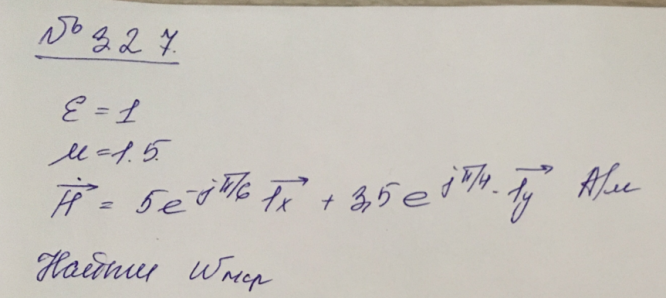 № 3.2 7.
ε = 1
μ = 1.5.
\vec{\dot{H}} = 5e^{-jπ/6} \vec{1_x} + 3,5 e^{jπ/4} · \vec{1_y} А/м
Найти w_{м ср}